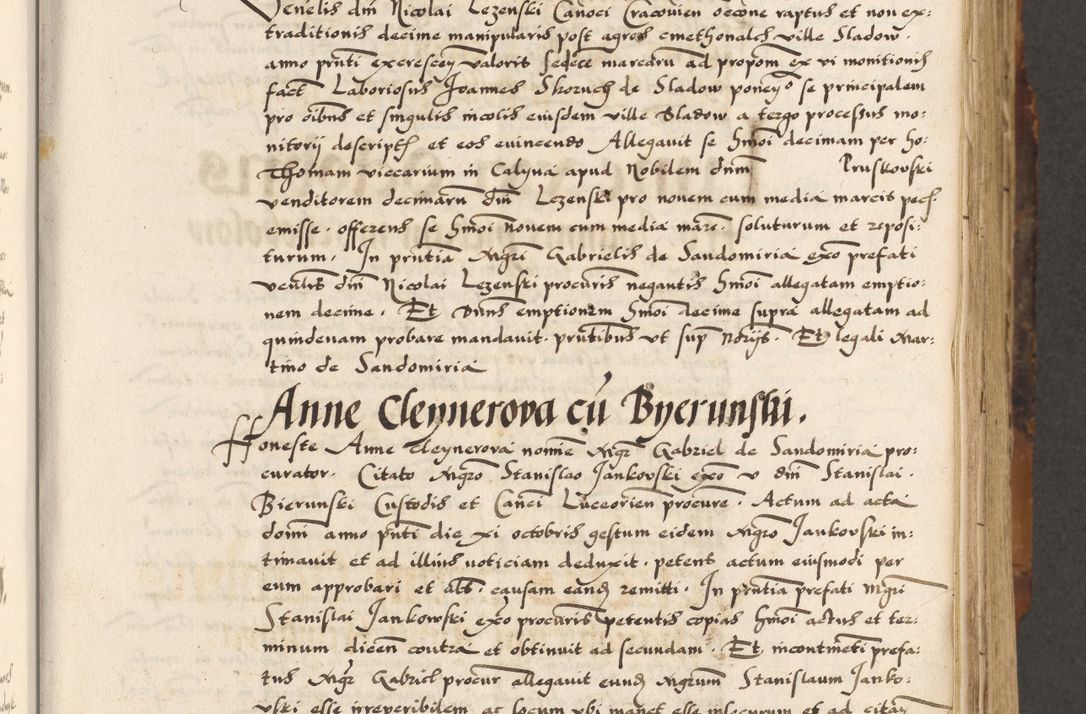 Venelis dni Nicolai Lezenski Canoci Cracovien occone raptus et non ex:
traditionis decime manipularis post agros cmethonales ville Sladow.
anno prnti excrescen valoris sedece marcaru ad propom ex vi monitionis
fact Laboriosus Joannes Skoruch de Sladow ponens se principalem
pro oibus et singulis incolis eiusdem ville Sladow a tergo processus mo:
nitorij descriptis et eos evincendo Allegavit se hmoi decimam per ho:
Thomam viccarium in Calyna apud Nobilem dnm Pruskovski
venditorem decimaru dni Lezenski pro novem cum media marcis pecu
emisse. offerens se hmoi novem cum media marc. soluturum et reposi:
turum. In prntia Mgri Gabrielis de Sandomiria exo prefati
venlis dni Nicolai Lezenski procuris negantis hmoi allegatam emptio:
nem decime. Et Dnus emptionem hmoi decime supra allegatam ad
quindenam probare mandavit. prntibus ut sup Norijs. Et legali Mar:
tino de Sandomiria
Anne Cleynerova cu Byerunski.
Honeste Anne Cleynerova nomine Mgr Gabriel de Sandomiria pro:
curator. Citato Mgro Stanislao Jankovski exo v dni Stanislai.
Bierunski Custodis et Canci Luceorien procure. Actum ad acta
domi anno pnti die xi octobris gestum eidem Mgro Jankovski in:
timavit et ad illius noticiam deduxit. petens actum eiusmodi per
eum approbari et abs. causam eand remitti. In prntia prefati Mgri
Stanislai Jankowski exo procuris petentis copias hmoi actus et ter:
minum dicen contra et obtinuit ad secundam. Et incontineti prefa:
tus Mgr Gabriel procur allegavit eund Mgrum Stanislaum Janko:
vski esse irreveribilem ac locum ubi manet esse inlocurum et ad citan